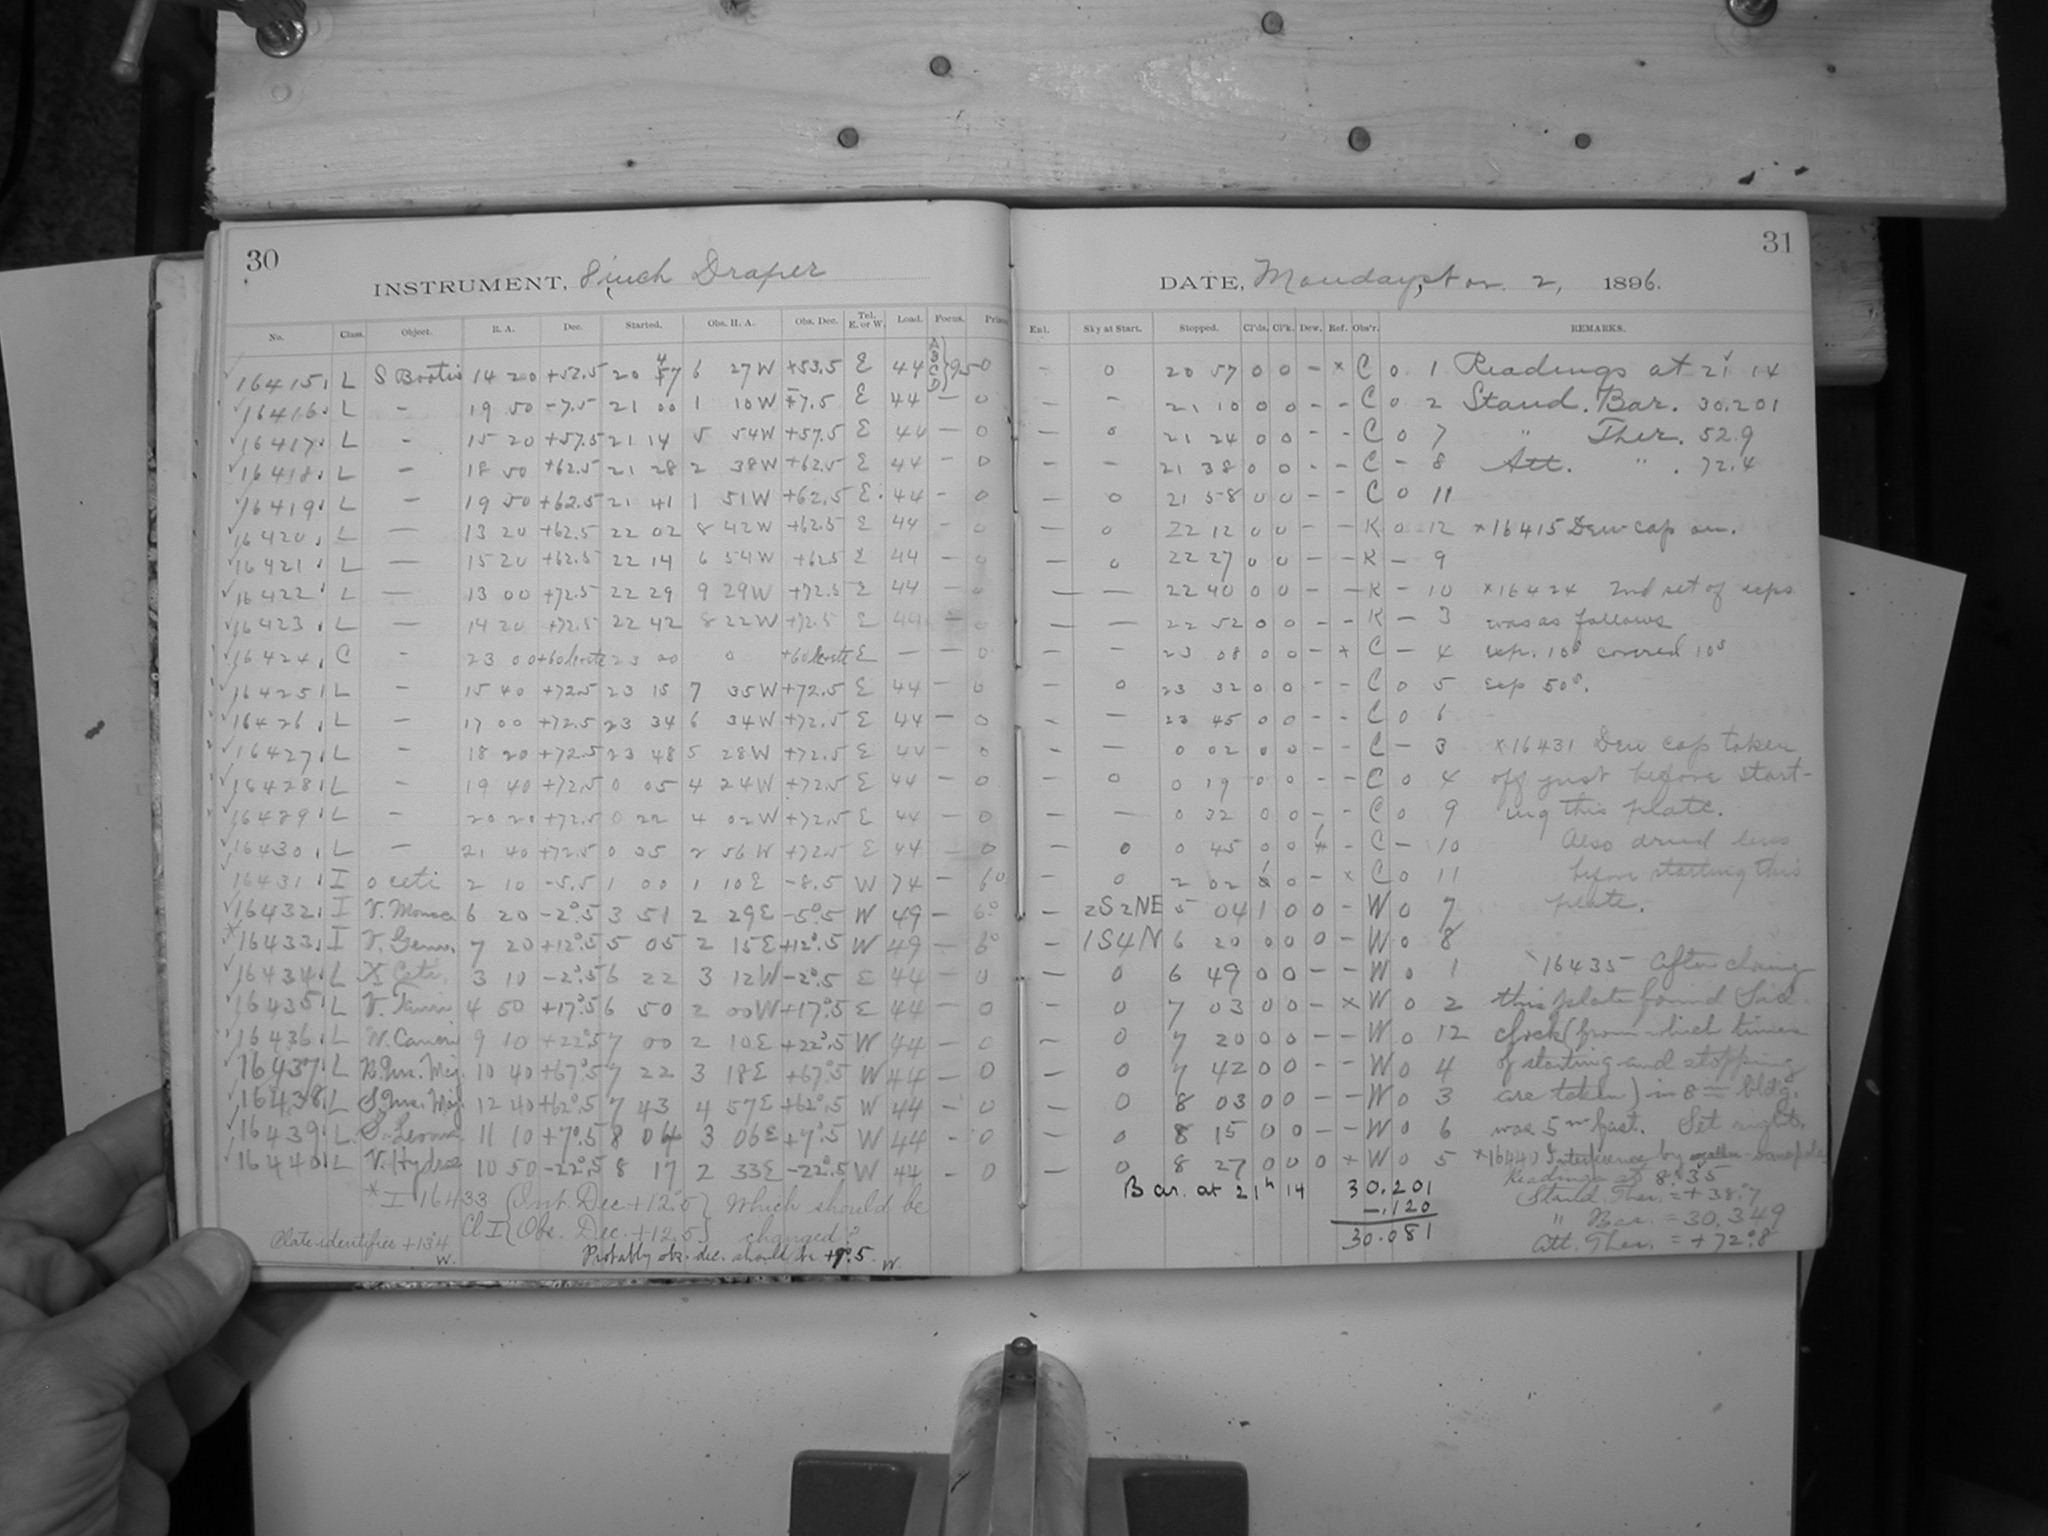 30
INSTRUMENT, 8 inch Draper
No. Class. Object. R. A. Dec. Started. Obs. H. A. Obs. Dec. Tel. E. or W. Load. Focus. Prism
16415. L S Bootis 14 20 +52.5 20 47 6 27 W +53.5 E 44 A B C D } 9.5 0
16416. L - 19 50 -7.5 21 00 1 10W -7.5 E 44 - 0
16417. L - 15 20 +57.5 21 14 5 54W +57.5 E 44 - 0
16418. L - 18 50 +62.5 21 28 2 38W +62.5 E 44 - 0
16419. L - 19 50 +62.5 21 41 1 51W +62.5 E 44 - 0
16420. L - 13 20 +62.5 22 02 8 42W +62.5 E 44 - 0
16421. L - 15 20 +62.5 22 14 6 54W +62.5 E 44 - 0
16422 L - 13 00 +72.5 22 29 9 29W +72.5 E 44 - 0
16423. L - 14 20 +72.5 22 42 8 22W +72.5 E 44 - 0
16424. C - 23 00 +60 23 00 0 +60 E - - 0
16425 L - 15 40 +72.5 23 15 7 35W +72.5 E 44 - 0
16426. L - 17 00 +72.5 23 34 6 34W +72.5 E 44 - 0
16427. L - 18 20 +72.5 23 48 5 28W +72.5 E 44 - 0
16428. L - 19 40 +72.5 0 05 4 24W +72.5 E 44 - 0
16429. L - 20 20 +72.5 0 22 4 02W +72.5 E 44 - 0
16430. L - 21 40 +72.5 0 35 2 56W +72.5 E 44 - 0
16431. I o Ceti 2 10 -5.5 1 00 1 10E -8.5 W 74 - 6°
16432. I V. Monoc 6 20 -2°.5 3 51 2 29E -5°.5 W 49 - 6°
*16433. I V. Gem. 7 20 +12°.5 5 05 2 15E +12°.5 W 49 - 6°
16434. L X Ceti 3 10 -2°.5 6 22 3 12W -2°.5 E 44 - 0
16435. L V. Tauri 4 50 +17°.5 6 50 2 00W +17°.5 E 44 - 0
16436. L W. Cancri 9 10 +22°.5 7 00 2 10E +22°.5 W 44 - 0
16437. L R. Urs. Maj. 10 40 +67°.5 7 22 3 18E +67°.5 W 44 - 0
16438. L S. Urs. Maj. 12 40 +62°.5 7 43 4 57E +62°.5 W 44 - 0
16439. L S. Leonis 11 10 +7°.5 8 04 3 06E +7°.5 W 44 - 0
16440. L V. Hydrae 10 50 -22°.5 8 17 2 33E -22°.5 W 44 - 0
* I 16433 { Ont. Dec +12.5 } Which should be
Cl I { Obs. Dec. +12.5 } changed?
Plate identifies +13°.4 W.
Probably obs. dec. should be +9°.5. W.
31
DATE, Monday, Nov. 2, 1896.
Ent. Sky at Start. Stopped. Cl'ds. Cl'k. Dew. Ref. Obs'r. REMARKS.
- 0 20 57 0 0 - × C 0 1 Readings at 21 14
- - 21 10 0 0 - - C 0 2 Stand. Bar. 30.201
- 0 21 24 0 0 - - C 0 7 " Ther. 52.9
- - 21 38 0 0 - - C - 8 Att. " . 72.4
- 0 21 58 0 0 - - C 0 11
- 0 22 12 0 0 - - K 0 12 ×16415 Dew cap on.
- 0 22 27 0 0 - - K - 9
- - 22 40 0 0 - - K - 10 ×16424 2nd set of exps
- - 22 52 0 0 - - K - 3 was as follows
- - 23 08 0 0 - × C - 4 exp. 10s covered 10s
- 0 23 32 0 0 - - C 0 5 exp 50s.
- - 23 45 0 0 - - C 0 6
- - 0 02 0 0 - - C - 3 ×16431 Dew cap taken
- 0 0 19 0 0 - - C 0 4 off just before start-
- - 0 32 0 0 - - C 0 9 ing this plate.
- 0 0 45 0 0 1 - C - 10 Also dried lens
- 0 2 02 1 0 - × C 0 11 before starting this
- 2S2NE 5 04 1 0 0 - W 0 7 plate.
- 1S4N 6 20 0 0 0 - W 0 8
- 0 6 49 0 0 - - W 0 1 ×16435 After closing
- 0 7 03 0 0 - × W 0 2 this plate found Sid.
- 0 7 20 0 0 - - W 0 12 clock (from which times
- 0 7 42 0 0 - - W 0 4 of starting and stopping
- 0 8 03 0 0 - - W 0 3 are taken) in 8 in bldg.
- 0 8 15 0 0 - - W 0 6 was 5m fast. Set right.
- 0 8 27 0 0 0 × W 0 5 ×16440 Interference by
Bar. at 21h 14 30.201
-.120
30.081
Readings at 8h 35
Stand. Ther. = +38°.7
" Bar. = 30.349
Att. Ther. = +72°.8